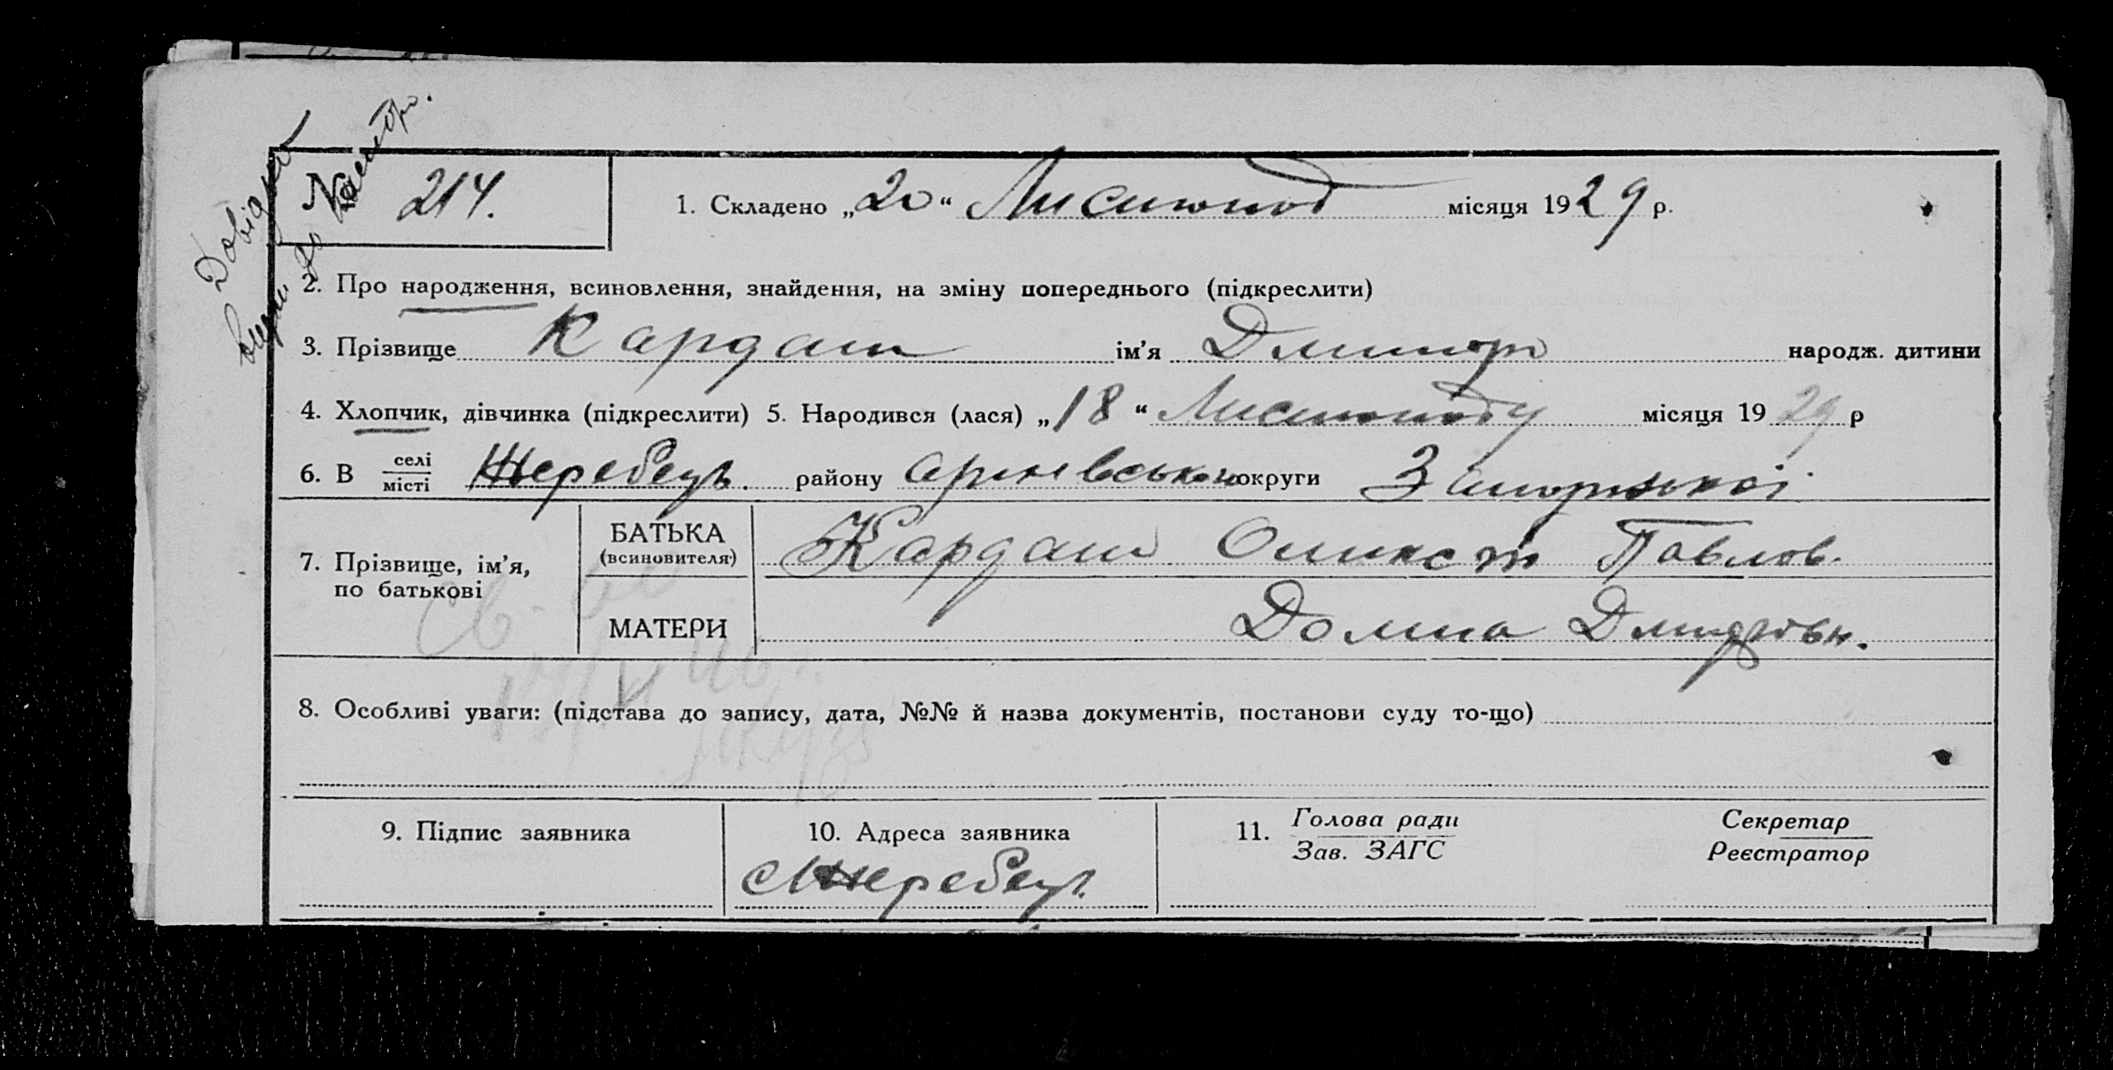 Довідка
№ 214.
1. Складено „20“ Листопад місяця 1929 р.
2. Про народження, всиновлення, знайдення, на зміну попереднього (підкреслити)
3. Прізвище Кардаш ім’я Дмитро народж. дитини
4. Хлопчик, дівчинка (підкреслити) 5. Народився (лася) „18“ Листопаду місяця 1929 р
6. В селі місті Жеребець району округи Запоріжкої
7. Прізвище, ім’я, по батькові
БАТЬКА (всиновителя) Кардаш Павлов.
МАТЕРИ Домна Дмитровн.
8. Особливі уваги: (підстава до запису, дата, №№ й назва документів, постанови суду то-що)
9. Підпис заявника
10. Адреса заявника
с Жеребець
11. Голова ради
Зав. ЗАГС
Секретар
Реєстратор